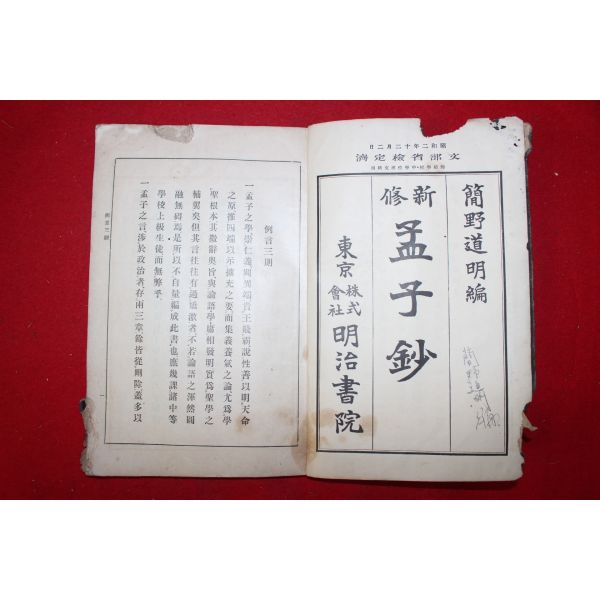 昭和二年十二月二日
文部省檢定濟
簡野道明編
新修
孟子鈔
東京
株式會社
明治書院
例言三則
一孟子之學崇仁義闢異端貴王賤霸說性善以明天命
之原推四端以示擴充之要而集義養氣之論尤爲學
聖根本其微辭奧旨與論語學庸相發明實爲聖學之
輔翼矣但其言往往有過矯激者不若論語之渾然圓
融無碍焉是所以不自量編成此書也庶幾課諸中等
學校上級生徒而無弊乎
一孟子之言涉於政治者存兩三章餘皆從刪除蓋多以
例言三則